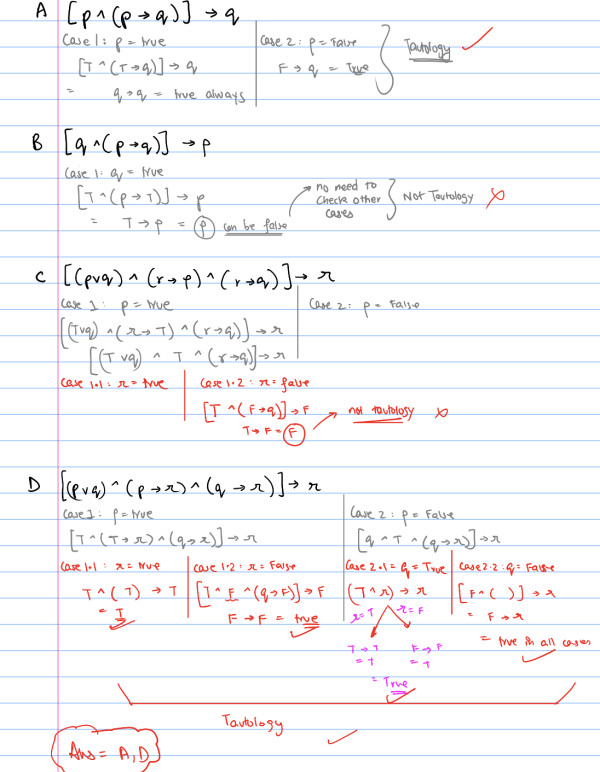 A [p ^ (p → q)] → q
Case 1: p = true
[T ^ (T → q)] → q
= q → q = true always
Case 2: p = False
F → q = True
Tautology ✓
B [q ^ (p → q)] → p
Case 1: q = true
[T ^ (p → T)] → p
= T → p = p can be false
no need to
check other
cases
Not Tautology ✗
C [(p v q) ^ (r → p) ^ (r → q)] → r
Case 1: p = true
[(T v q) ^ (r → T) ^ (r → q)] → r
[(T v q) ^ T ^ (r → q)] → r
Case 2: p = False
Case 1.1: r = true
Case 1.2: r = false
[T ^ (F → q)] → F
T → F = F
not tautology ✗
D [(p v q) ^ (p → r) ^ (q → r)] → r
Case 1: p = true
[T ^ (T → r) ^ (q → r)] → r
Case 2: p = False
[q ^ T ^ (q → r)] → r
Case 1.1: r = true
T ^ (T) → T
= T ✓
Case 1.2: r = False
[T ^ F ^ (q → F)] → F
F → F = true ✓
Case 2.1 = q = True
(T ^ r) → r
r = T r = F
T → T F → F
= T = T
= True ✓
Case 2.2: q = False
[F ^ ( )] → r
= F → r
= true in all cases ✓
Tautology ✓
Ans = A, D